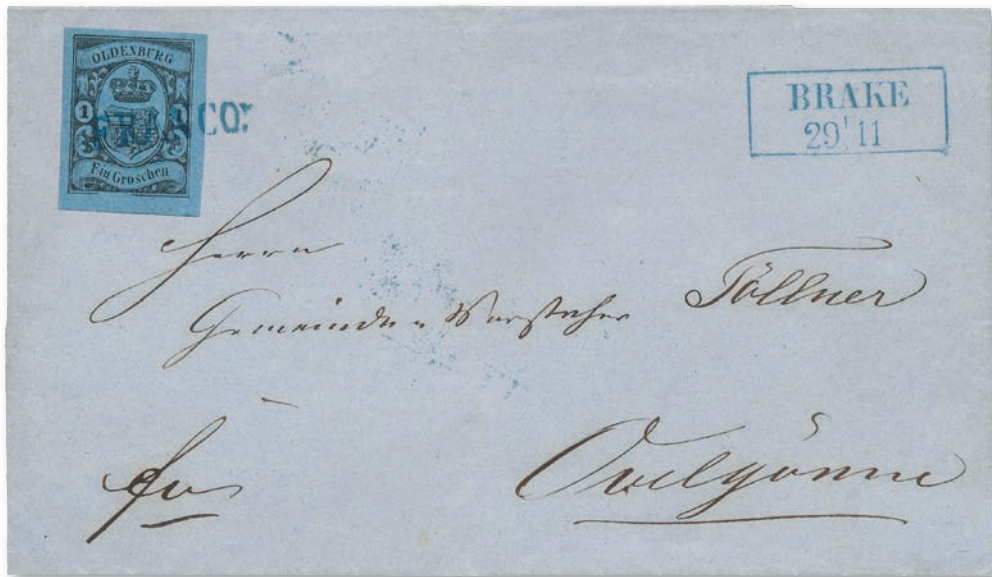 OLDENBURG
1 1
Ein Groschen
CO:
BRAKE
29 11
Herrn
Gemeinde-Vorsteher Töllner
Ovelgönne